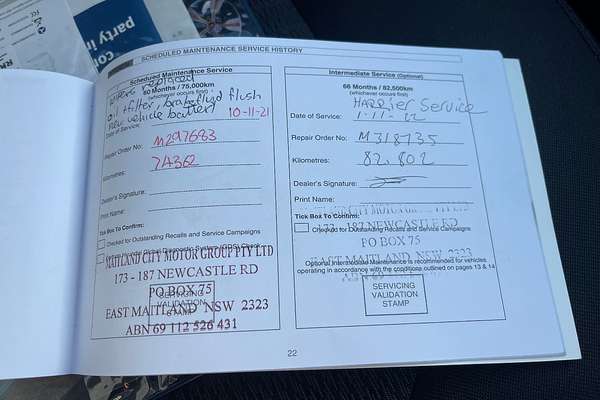 party in
SCHEDULED MAINTENANCE SERVICE HISTORY
Scheduled Maintenance Service
60 Months / 75,000km
(whichever occurs first)
wipers replaced
oil + filter, brake fluid flush
New vehicle battery
Date of Service: 10-11-21
Repair Order No: M297683
Kilometres: 74362
Dealer's Signature:
Print Name:
Tick Box To Confirm:
Checked for Outstanding Recalls and Service Campaigns
MAITLAND CITY MOTOR GROUP PTY LTD
173 - 187 NEWCASTLE RD
PO BOX 75
EAST MAITLAND NSW 2323
ABN 69 112 526 431
SERVICING
VALIDATION
STAMP
Intermediate Service (Optional)
66 Months / 82,500km
(whichever occurs first)
Service
Date of Service: 1-11-22
Repair Order No: M318735
Kilometres: 82,802
Dealer's Signature:
Print Name:
Tick Box To Confirm:
Checked for Outstanding Recalls and Service Campaigns
173 - 187 NEWCASTLE RD
PO BOX 75
EAST MAITLAND NSW 2323
Optional Intermediate Maintenance is recommended for vehicles
operating in accordance with the conditions outlined on pages 13 & 14
SERVICING
VALIDATION
STAMP
22